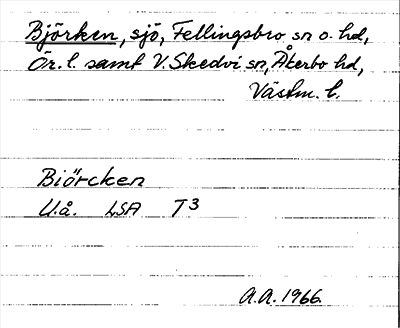 Björken, sjö, Fellingsbro sn o. hd,
Ör. l. samt V. Skedvi sn, Åkerbo hd,
Västm. l.
Biörcken
U.å. LSA T3
A.A. 1966